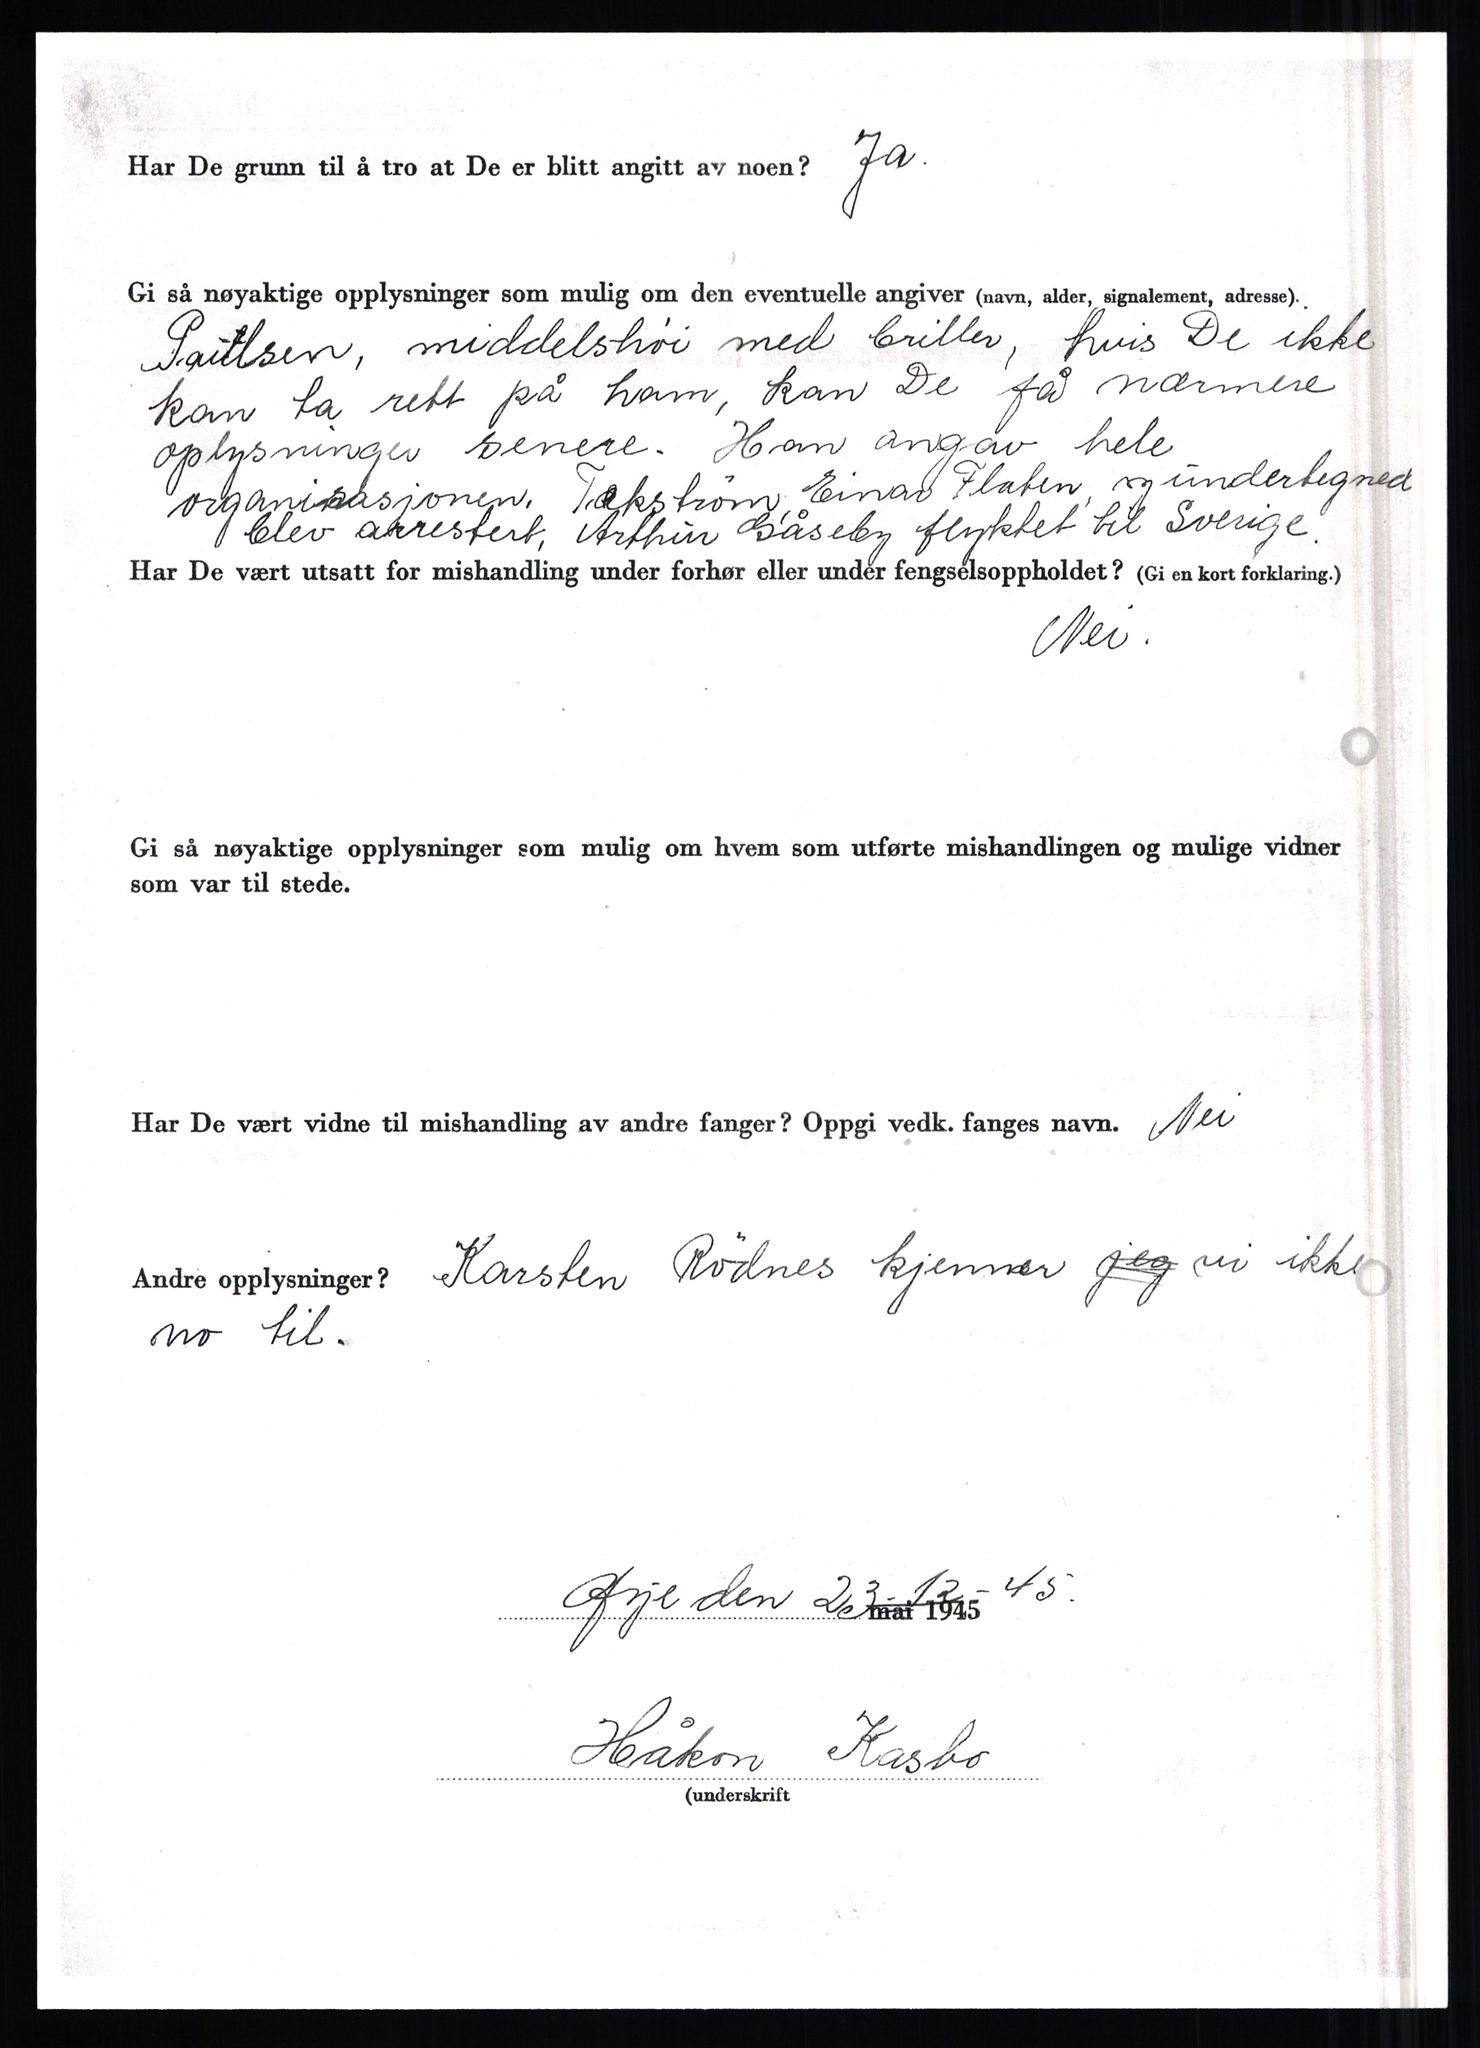 Har De grunn til å tro at De er blitt angitt av noen? Ja.
Gi så nøyaktige opplysninger som mulig om den eventuelle angiver (navn, alder, signalement, adresse).
middelshöi med briller, hvis De ikke
kan ta rett på ham, kan De få nærmere
oplysninger senere. Han angav hele
organisasjonen. Tekström, Einar Flaten, og undertegned
blev arrestert, Arthur Gåseby flyktet til Sverige.
Har De vært utsatt for mishandling under forhør eller under fengselsoppholdet? (Gi en kort forklaring.)
Nei.
Gi så nøyaktige opplysninger som mulig om hvem som utførte mishandlingen og mulige vidner
som var til stede.
Har De vært vidne til mishandling av andre fanger? Oppgi vedk. fanges navn. Nei
Andre opplysninger? Karsten Rödnes kjenner jeg vi ikke
no til.
Ørje den 23-12-45.
mai 1945
Håkon Kasbo
(underskrift